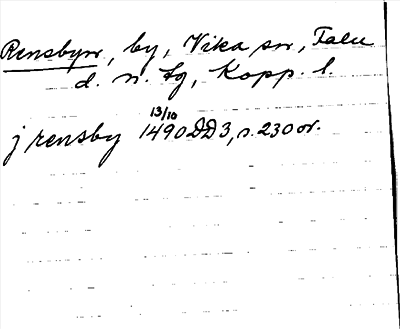 Rensbyn, by, Vika sn, Falu
d. n. tg, Kopp. l.
j rensby 13/10 1490 DD3, s. 230 or.